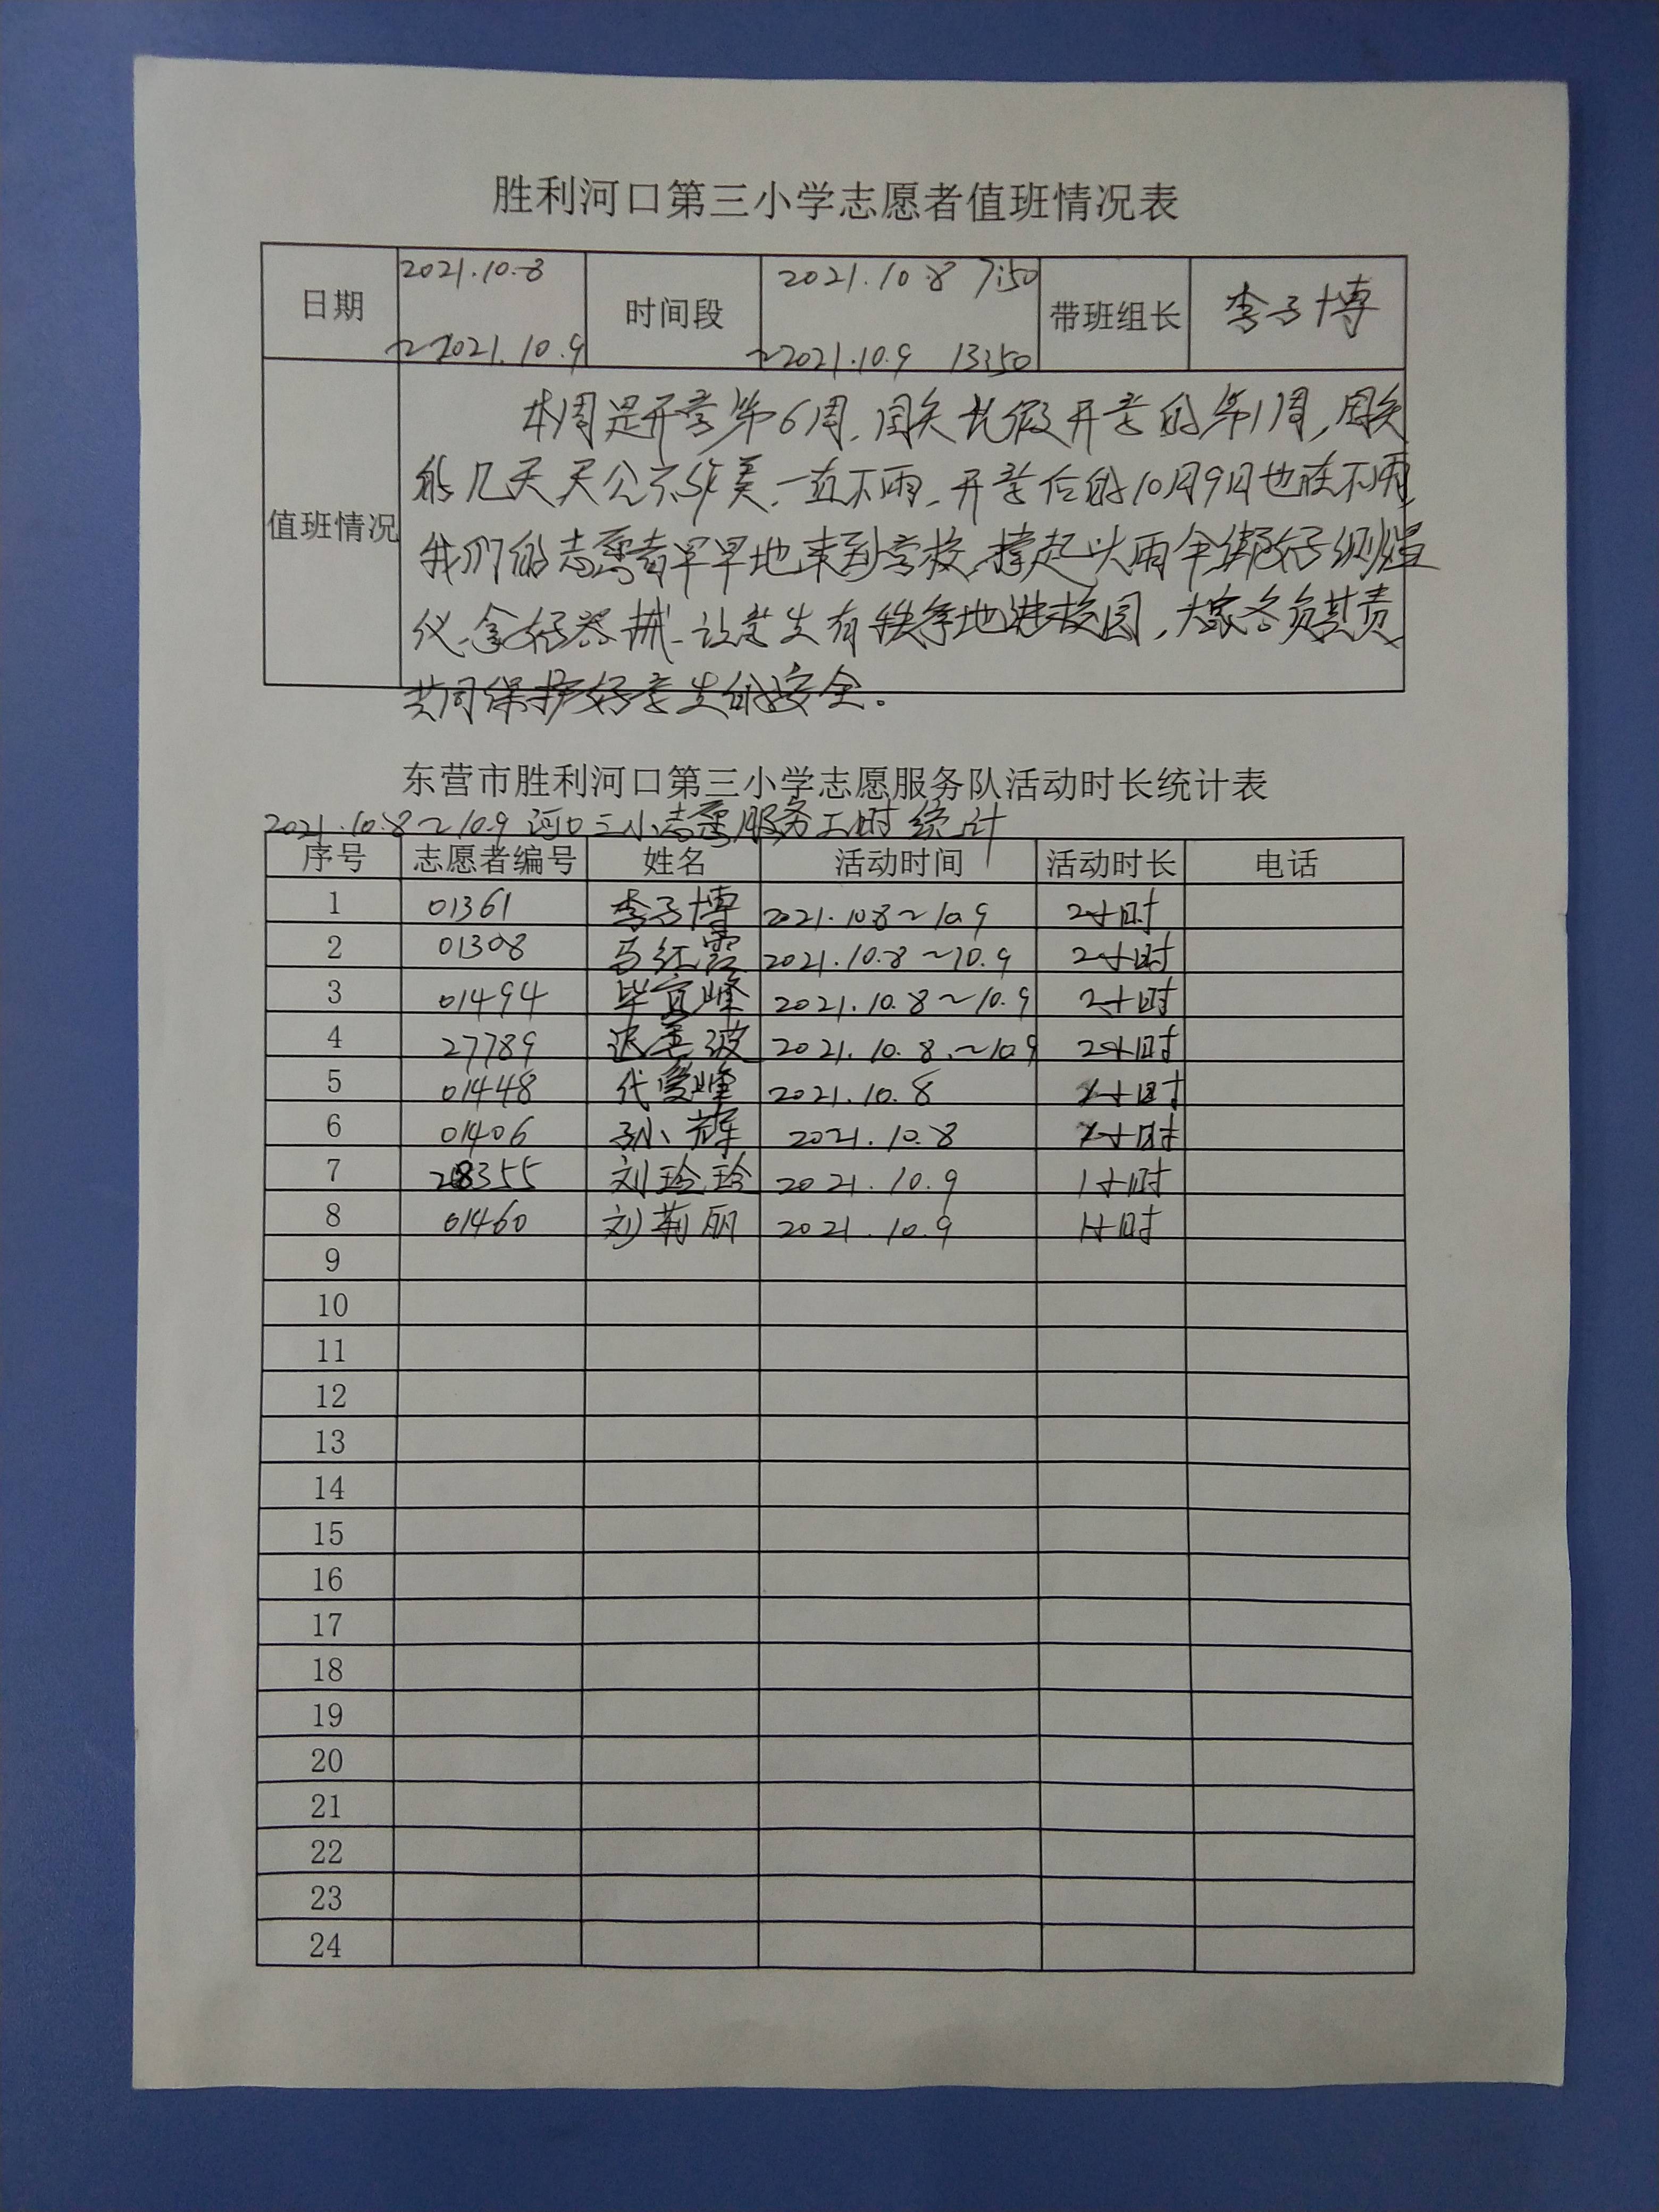 胜利河口第三小学志愿者值班情况表
日期 2021.10.8 ~2021.10.9 时间段 2021.10.8 7:50 ~2021.10.9 13:50 带班组长 李子博
值班情况
本周是开学第6周,国庆长假开学的第1周,国庆
的几天天公不作美,一直下雨,开学后的10月9日也在下雨,
我们的志愿者早早地来到学校,撑起大雨伞绑好测温
仪、拿好器械、让学生有秩序地进校园,大家各负其责
共同保护好学生的安全。
东营市胜利河口第三小学志愿服务队活动时长统计表
2021.10.8~10.9 河口三小志愿服务工时统计
序号 志愿者编号 姓名 活动时间 活动时长 电话
1 01361 李子博 2021.10.8~10.9 2小时
2 01308 马红霞 2021.10.8~10.9 2小时
3 01494 毕宜峰 2021.10.8~10.9 2小时
4 27789 迟 波 2021.10.8.~10.9 2小时
5 01448 代 峰 2021.10.8 小时
6 01406 孙小辉 2021.10.8 小时
7 28355 刘玲玲 2021.10.9 1小时
8 01460 刘莉丽 2021.10.9 1小时
9
10
11
12
13
14
15
16
17
18
19
20
21
22
23
24